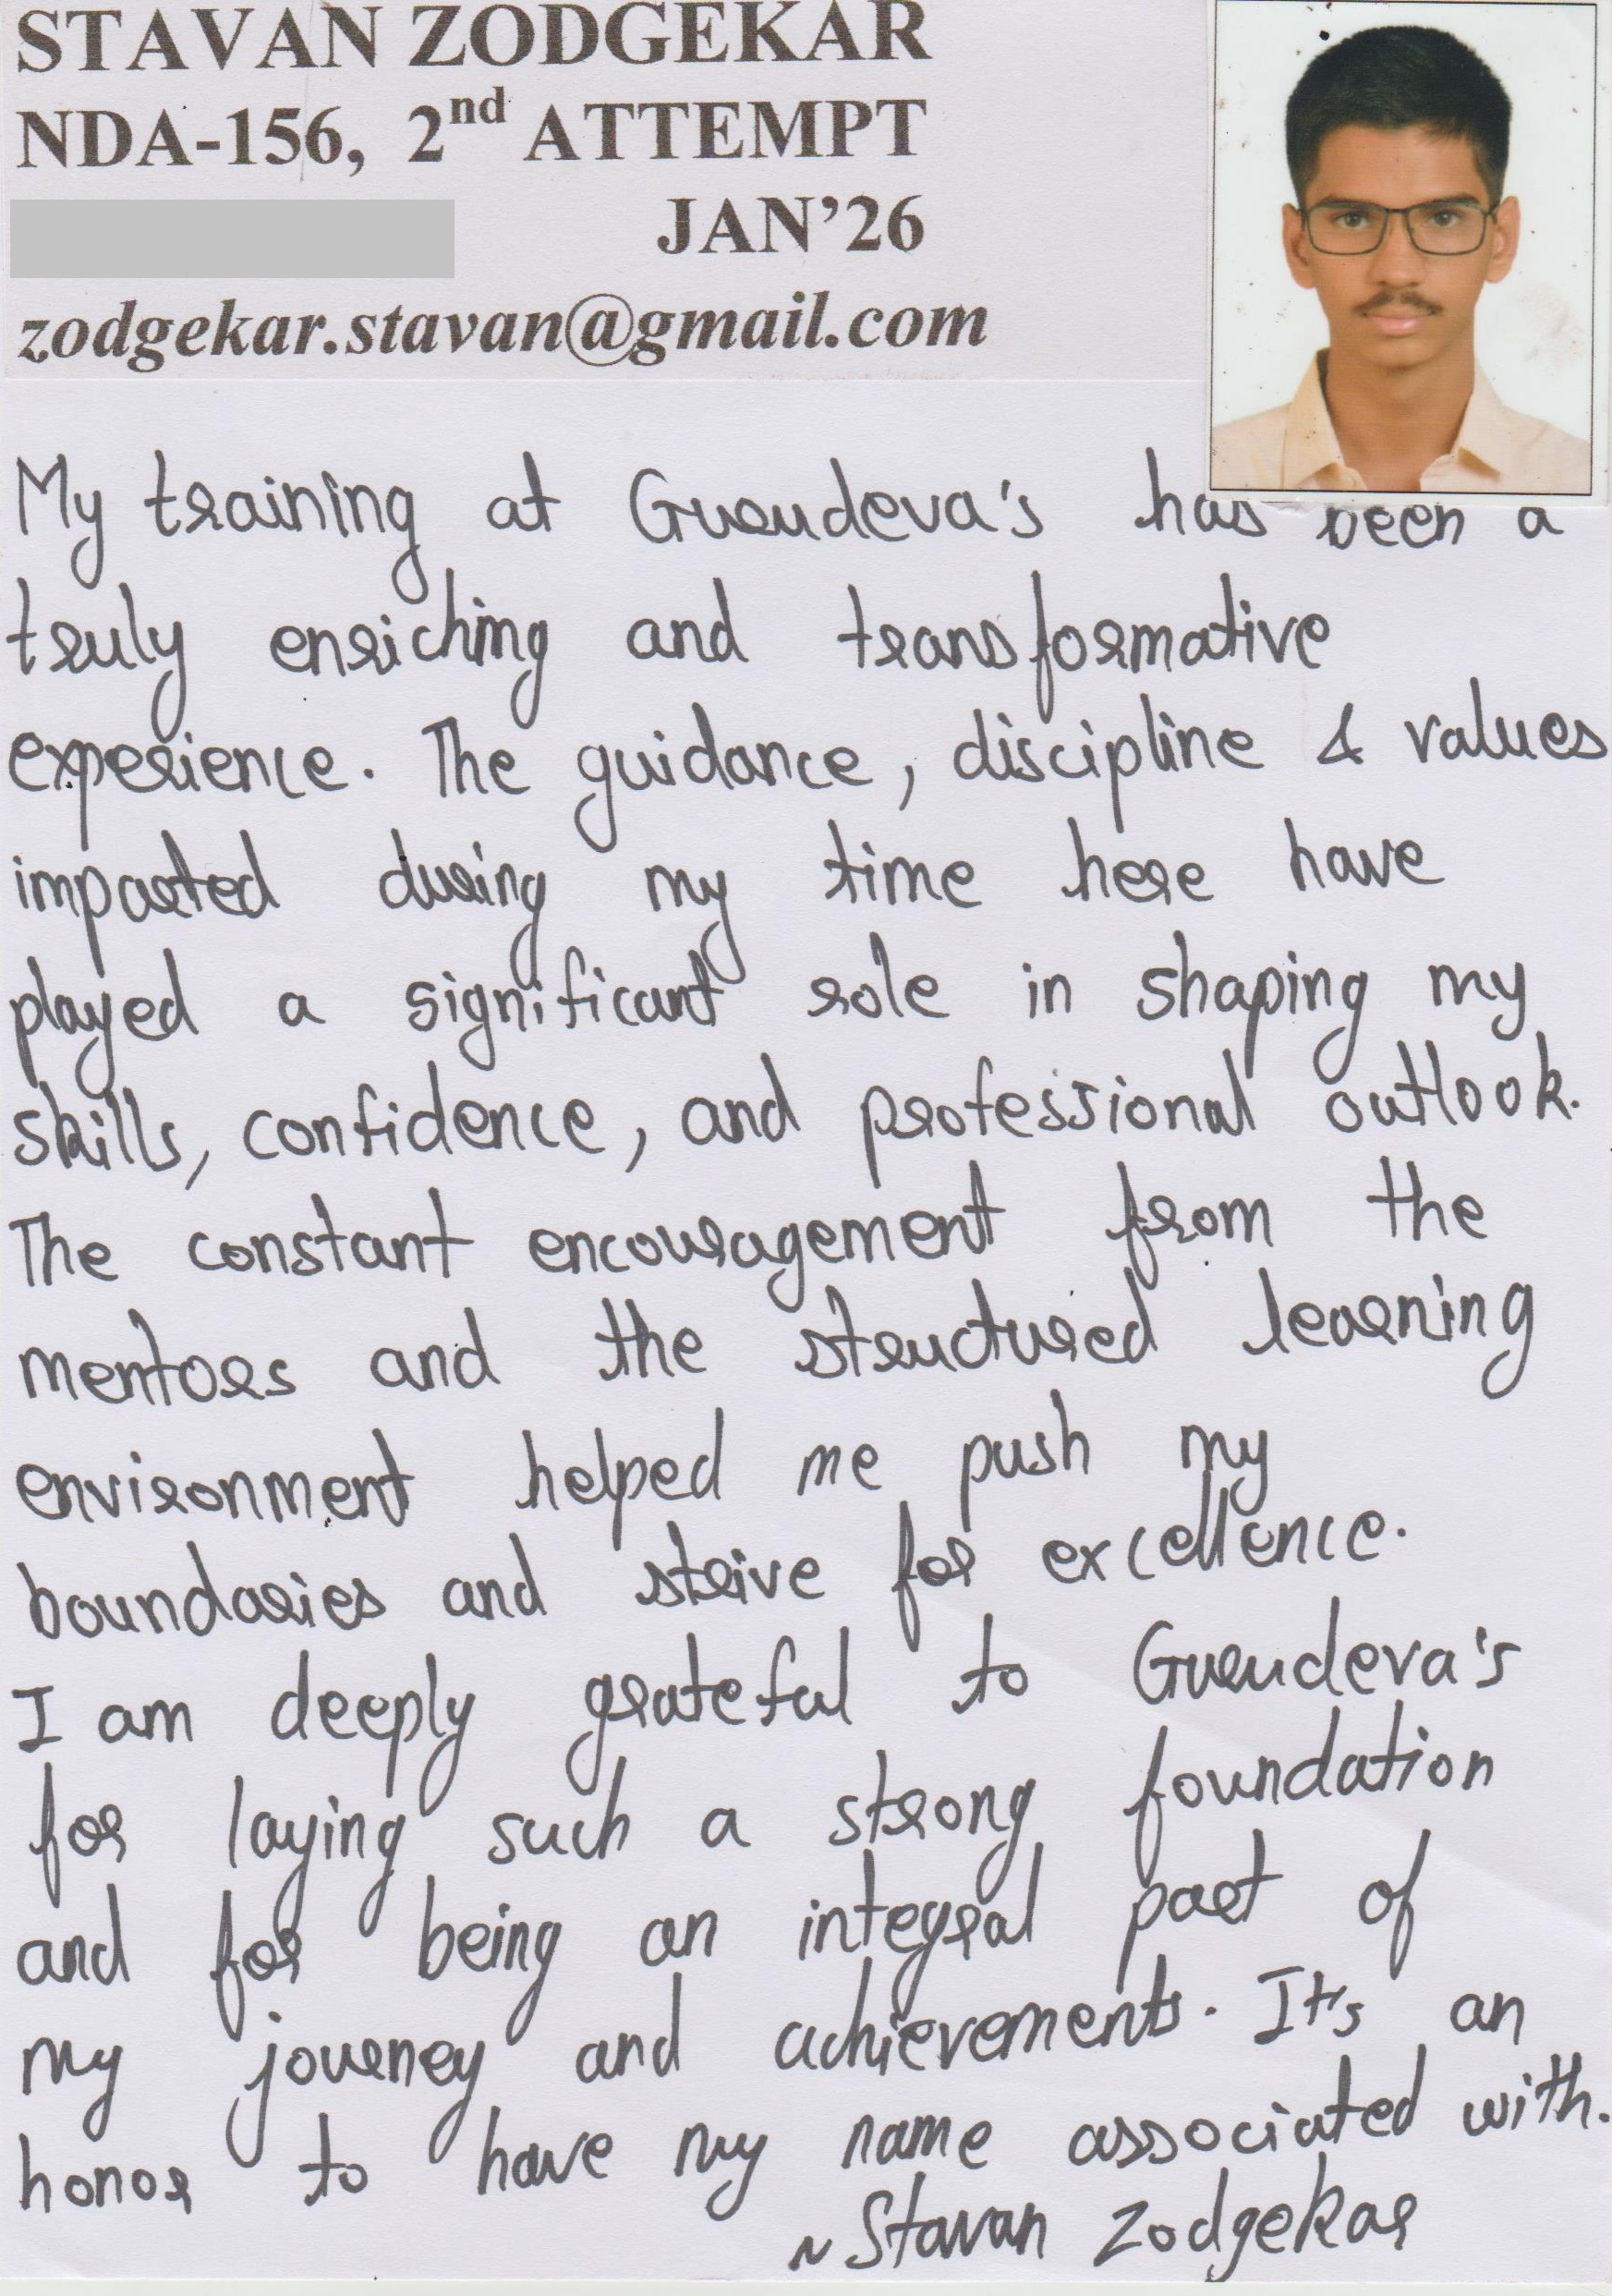 STAVAN ZODGEKAR
NDA-156, 2nd ATTEMPT
JAN'26
zodgekar.stavan@gmail.com
My training at Gurudeva's has been a
truly enriching and transformative
experience. The guidance, discipline & values
imparted during my time here have
played a significant role in shaping my
skills, confidence, and professional outlook.
The constant encouragement from the
mentors and the structured learning
environment helped me push my
boundaries and strive for excellence.
I am deeply grateful to Gurudeva's
for laying such a strong foundation
and for being an integral part of
my journey and achievements. It's an
honor to have my name associated with.
~ Stavan Zodgekar